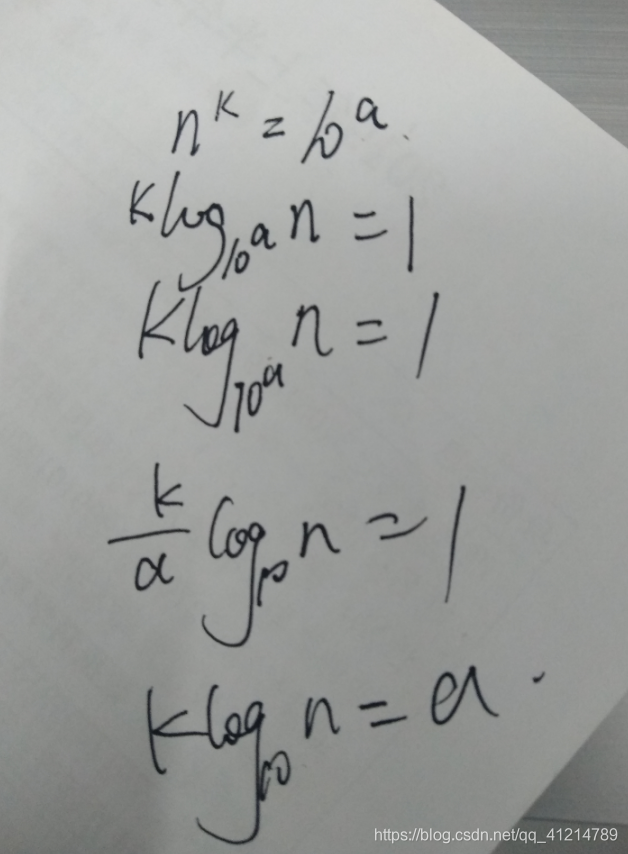 n^k = 10^a.
k log_{10^a} n = 1
k log_{10^a} n = 1
k/a log_{10} n = 1
k log_{10} n = a.
https://blog.csdn.net/qq_41214789